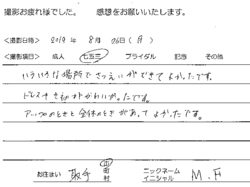 撮影お疲れ様でした。 感想をお願いいたします。
<撮影日時> 2019年 8月 06日(月)
<撮影項目> 成人 七五三 ブライダル 記念 その他
いろいろな場所でさつえいができてよかったです。
ドレスも着物もかわいかったです。
アップのときと全体のときがあってよかったです。
お住まい 取手 市 町 村 ニックネーム イニシャル M.F